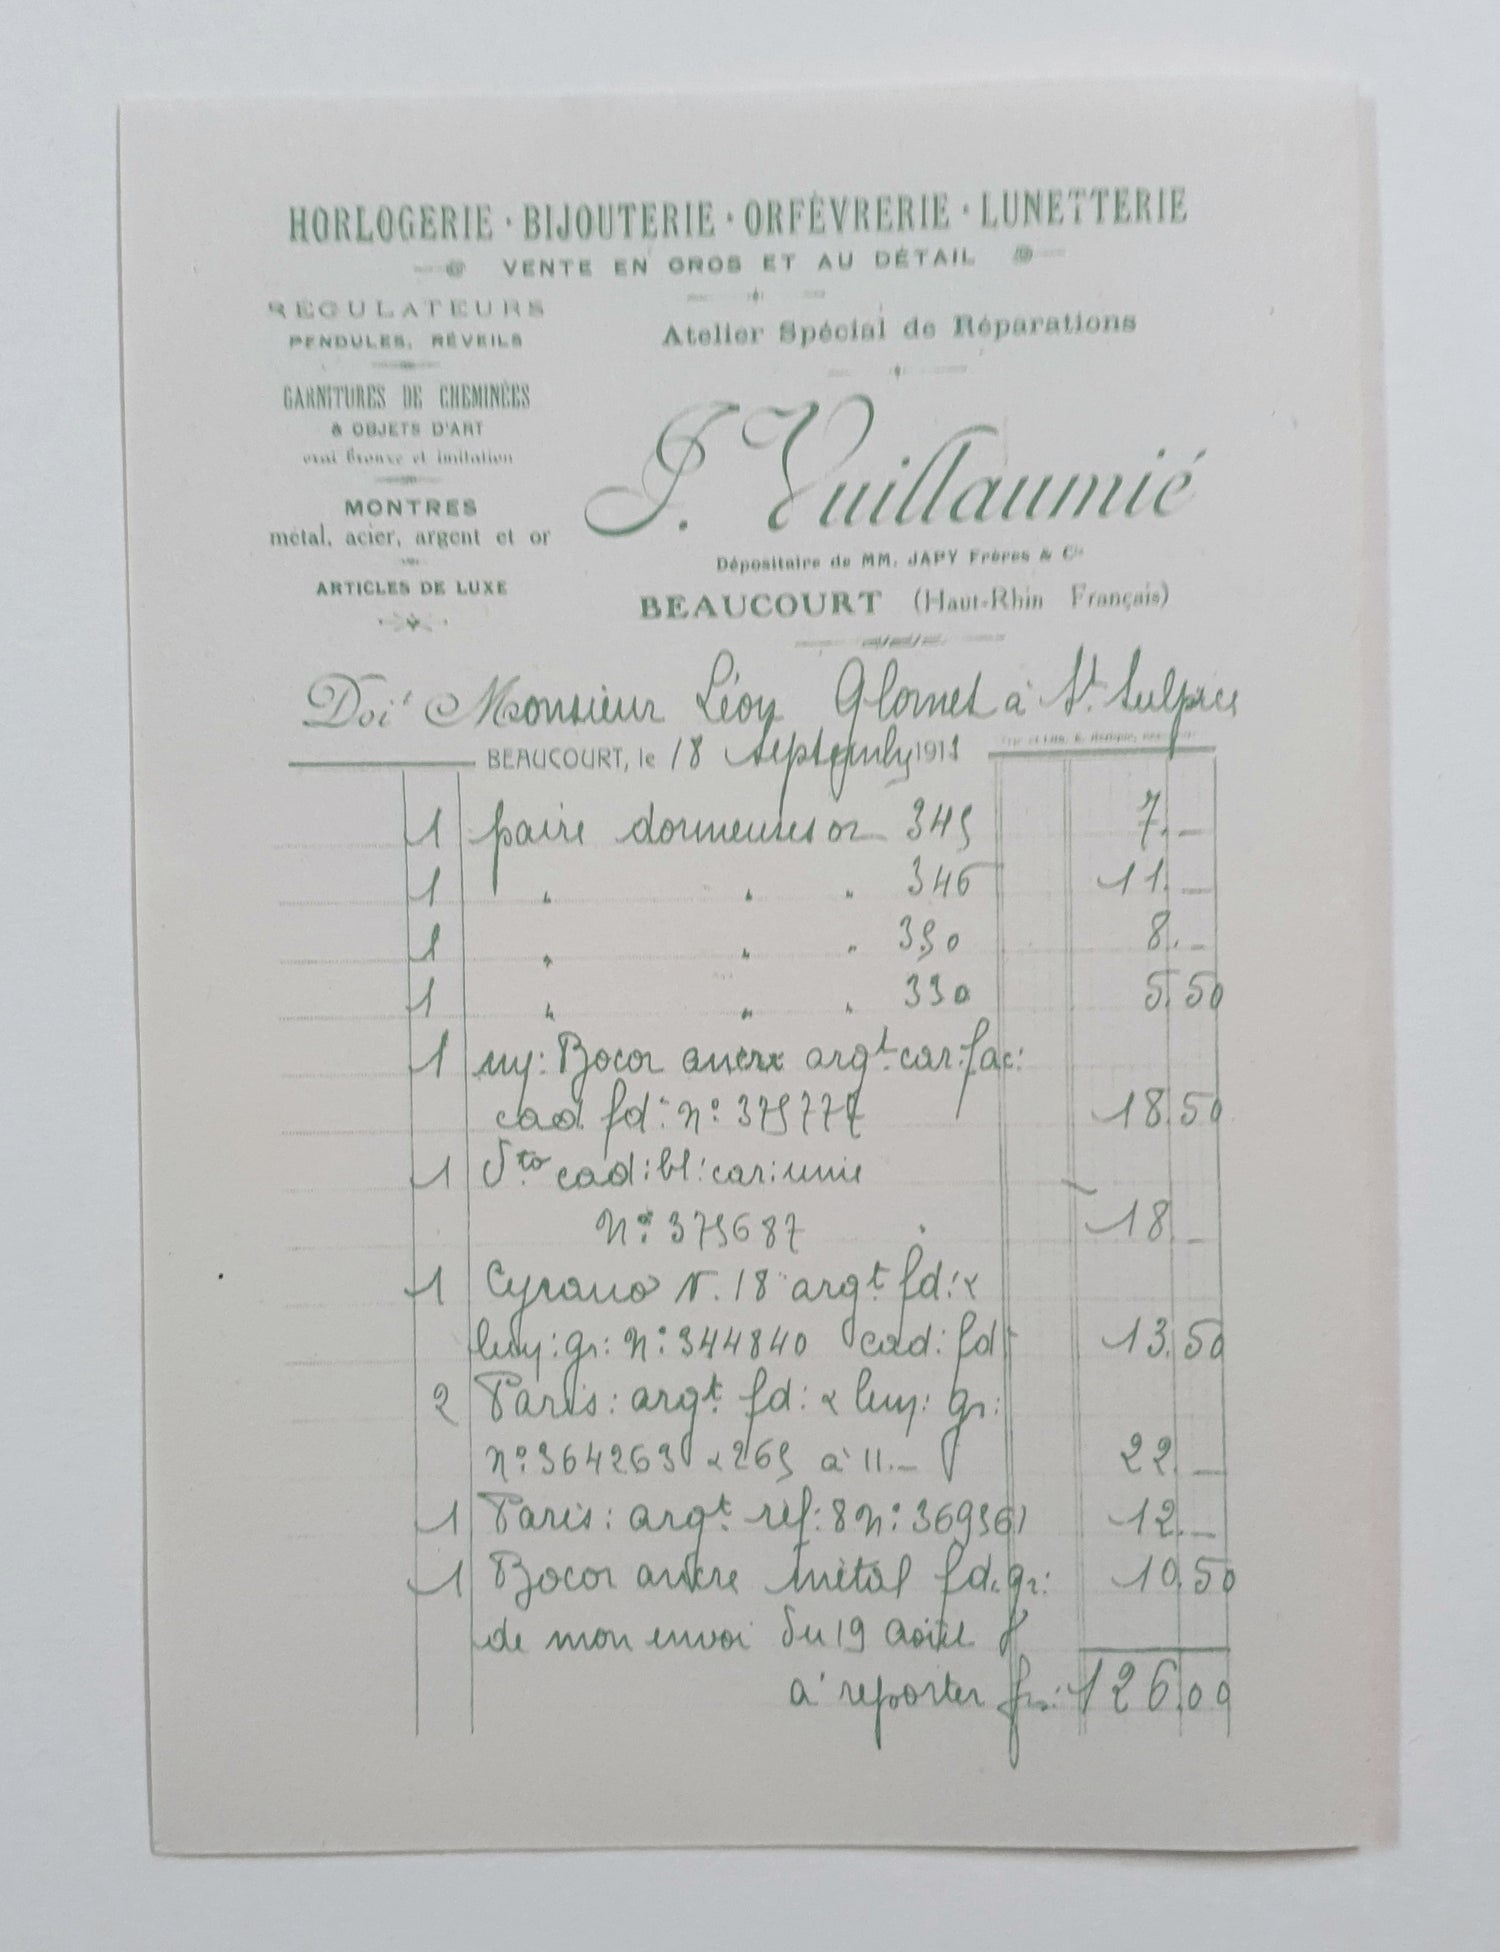 HORLOGERIE · BIJOUTERIE · ORFÈVRERIE · LUNETTERIE
VENTE EN GROS ET AU DÉTAIL
RÉGULATEURS
PENDULES, RÉVEILS
GARNITURES DE CHEMINÉES
& OBJETS D'ART
vrai bronze et imitation
MONTRES
métal, acier, argent et or
ARTICLES DE LUXE
Atelier Spécial de Réparations
J. Vuillaumié
Dépositaire de MM. JAPY Frères & Cie
BEAUCOURT (Haut-Rhin Français)
Doit Monsieur Léon Glomet à St Sulpice
BEAUCOURT, le 18 septembre 1911
1 paire dormeuses or 345 7.—
1 " " " 346 11.—
1 " " " 350 8.—
1 " " " 330 5.50
1 Bocor ancre argt. car: fac:
cad fd: N°: 375777 18.50
1 dto cad: bl: car: unie
N°: 375687 18.—
1 Cyrano N. 18 argt. fd: &
guy: gr: N°: 344840 cad: fd 13.50
2 Paris: argt. fd: & guy: gr:
N°: 364263 & 265 à 11.— 22.—
1 Paris: argt. réf: 8 N°: 369361 12.—
1 Bocor ancre métal fd. gr:
de mon envoi du 19 août 10.50
à reporter frs: 126.00